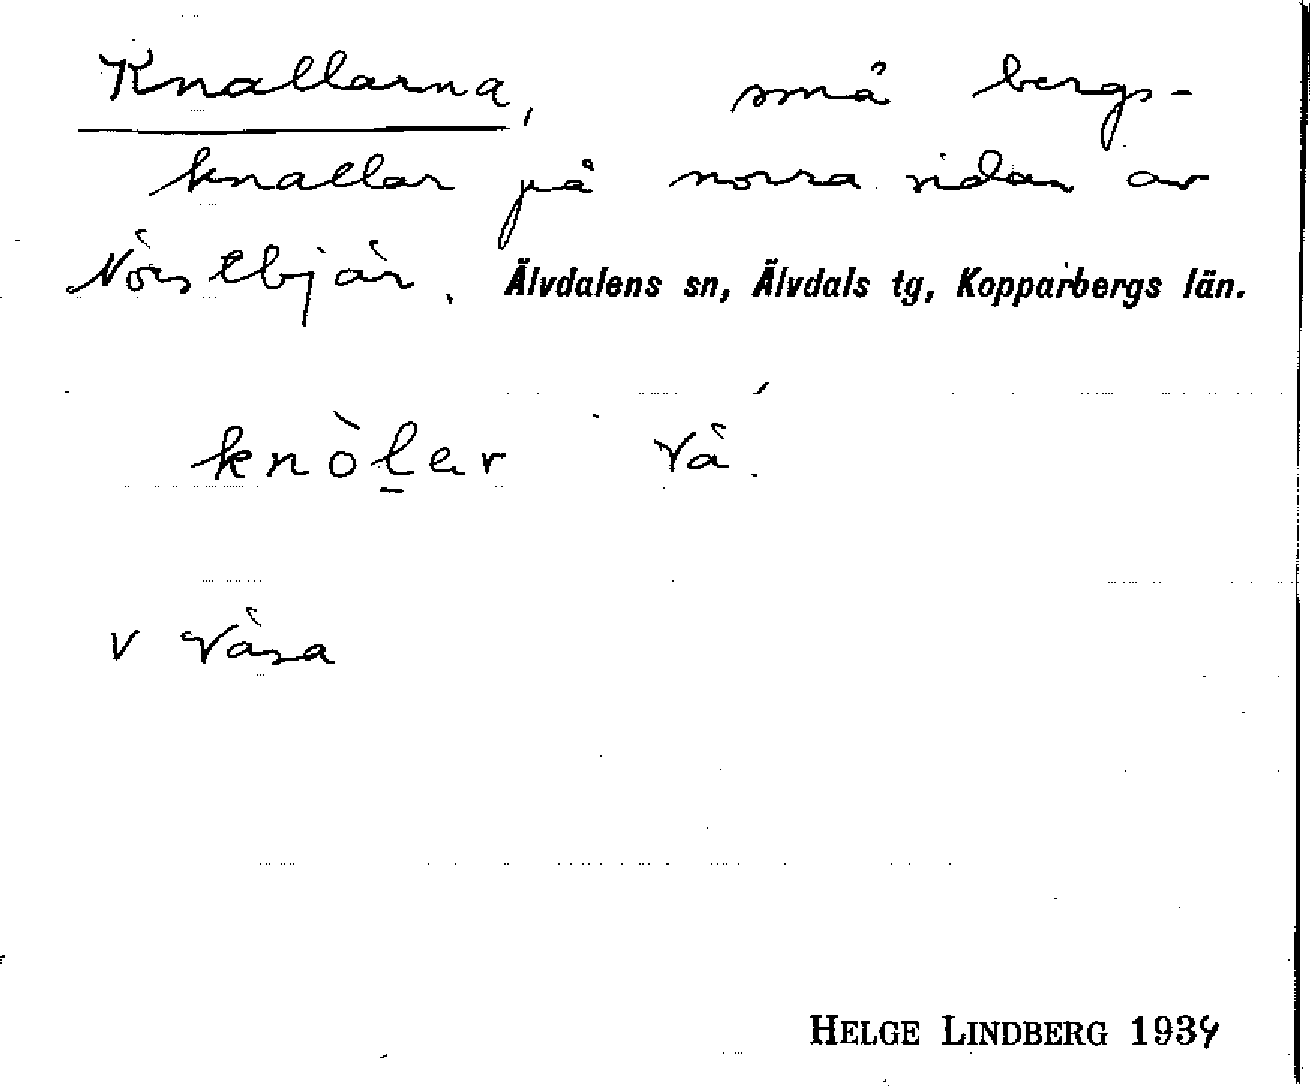 Knallarna, små bergs-
knallar på norra sidan av
Älvdalens sn, Älvdals tg, Kopparbergs län.
knò̀l̲ar Vå.
v Våsa
HELGE LINDBERG 1934